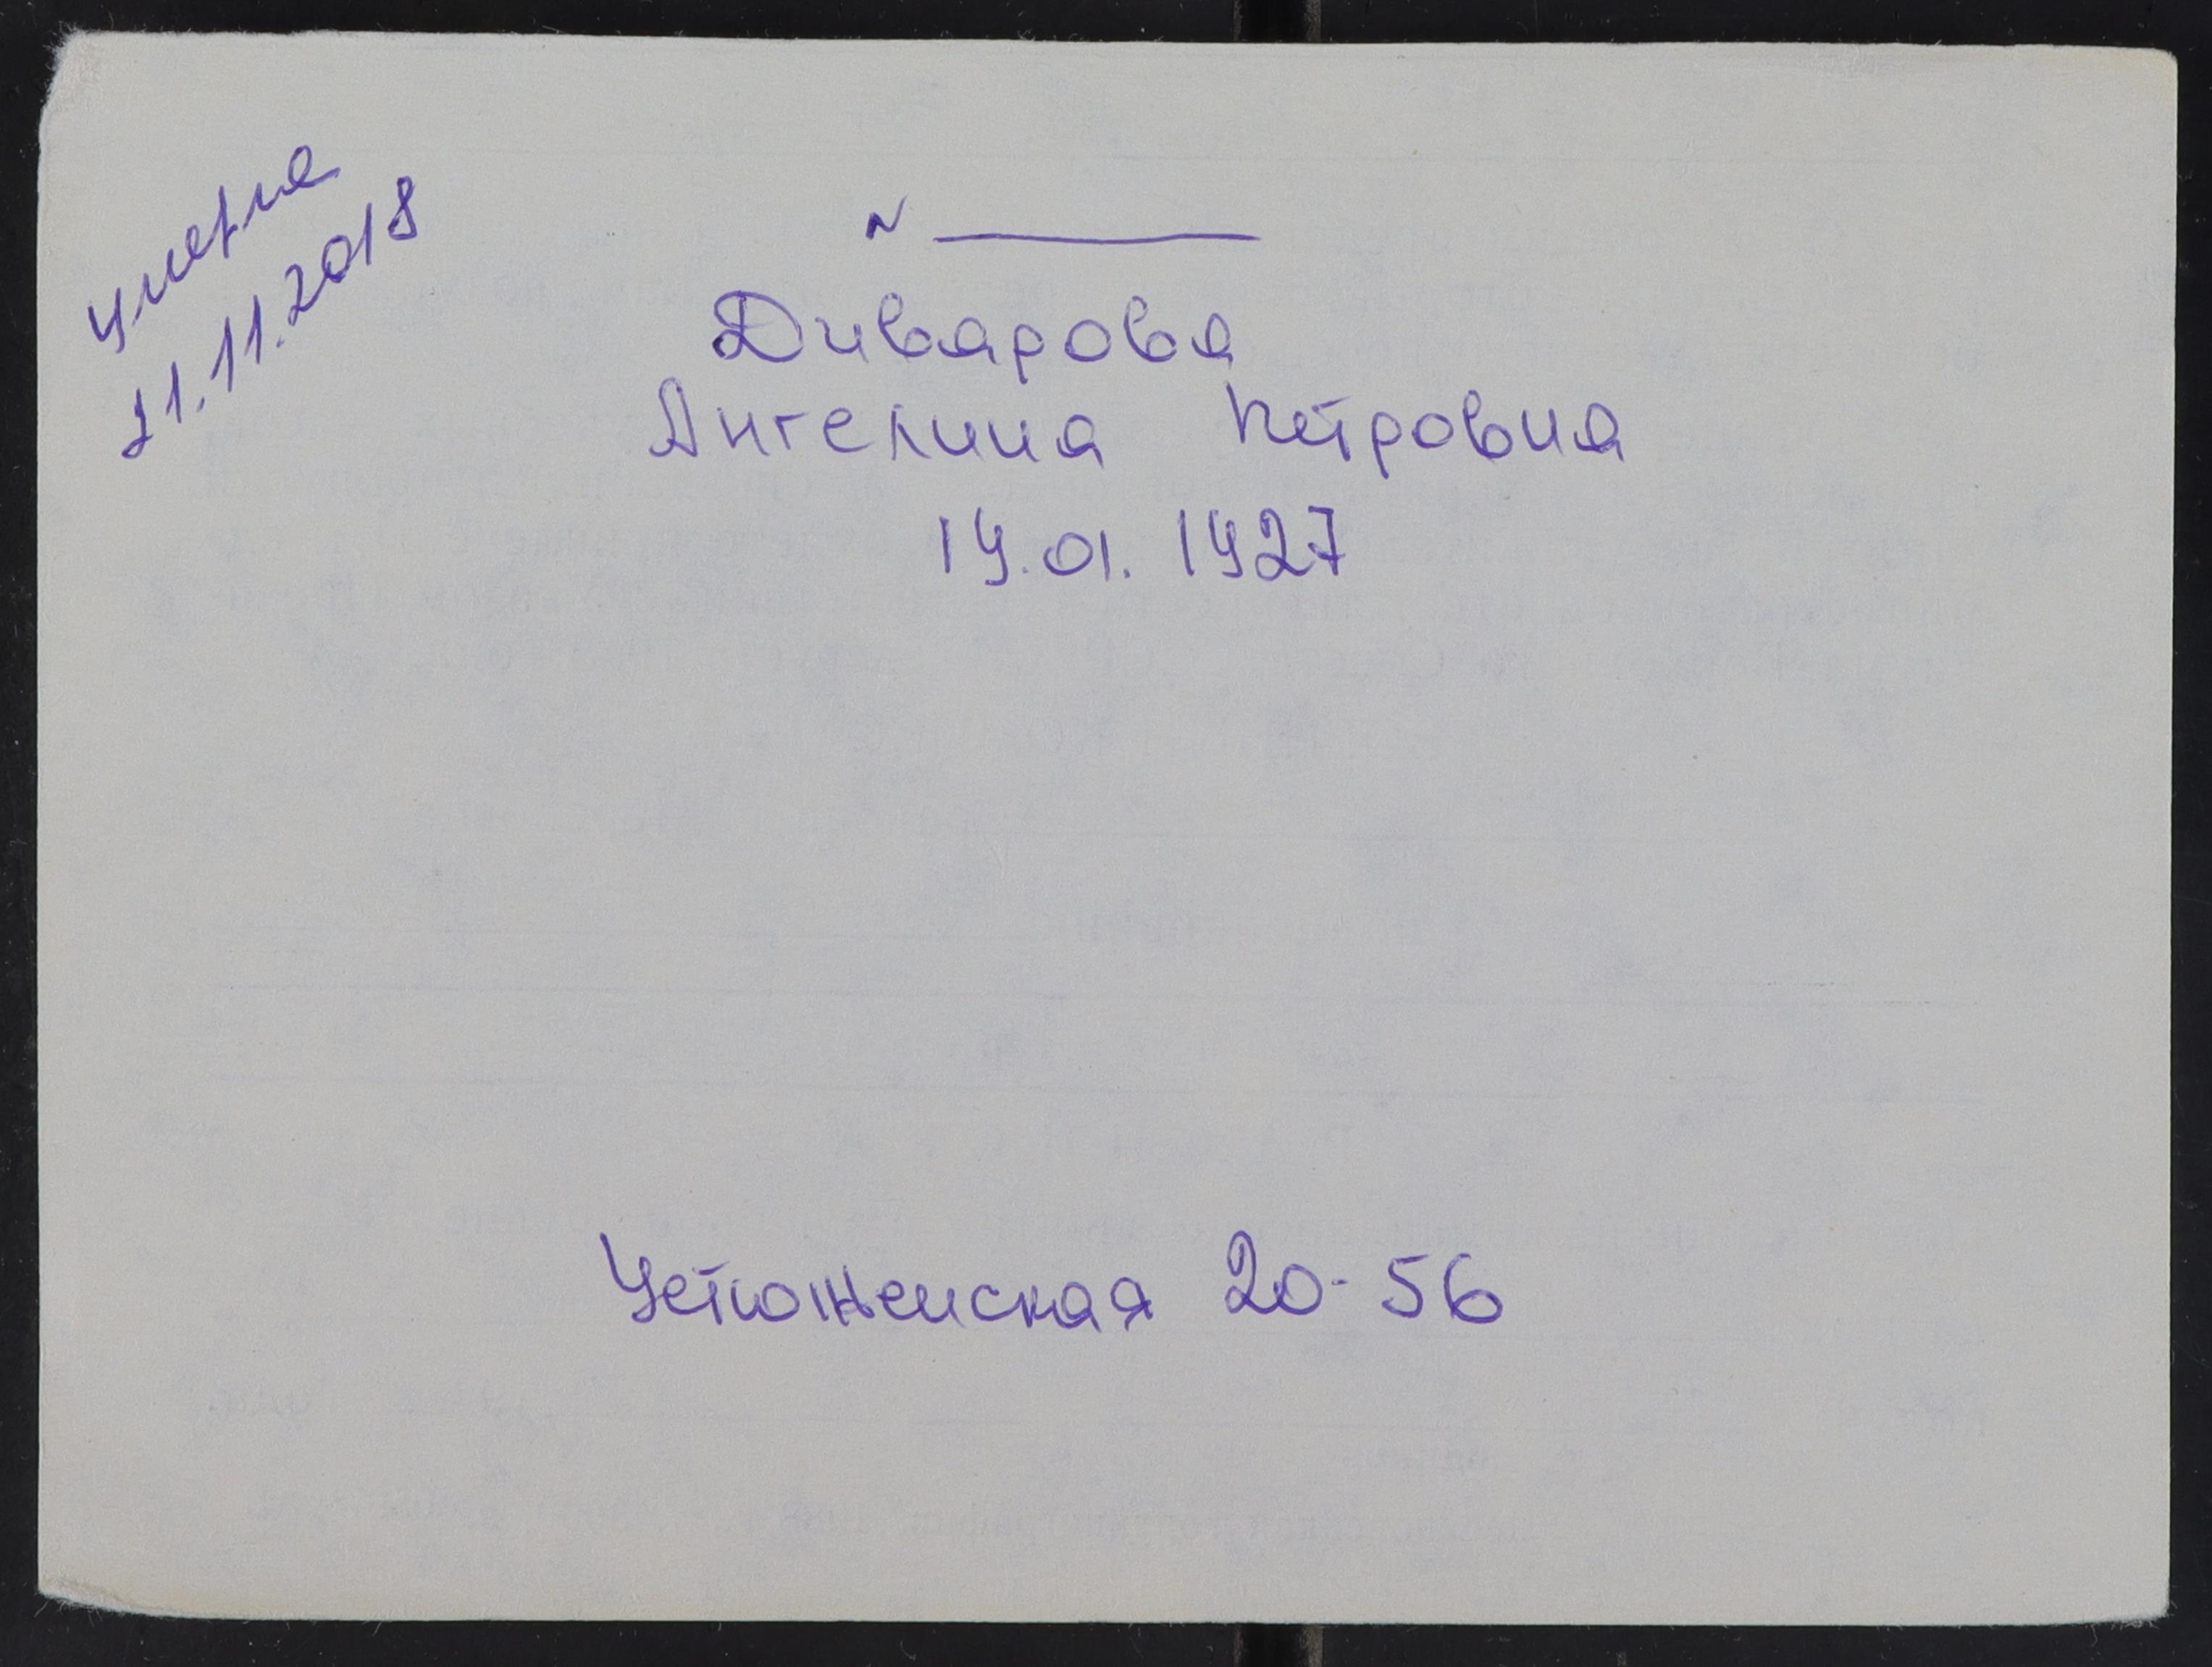 умерла
21.11.2018
N
Диварова
Ангелина Петровна
19.01.1927
Устюженская 20-56